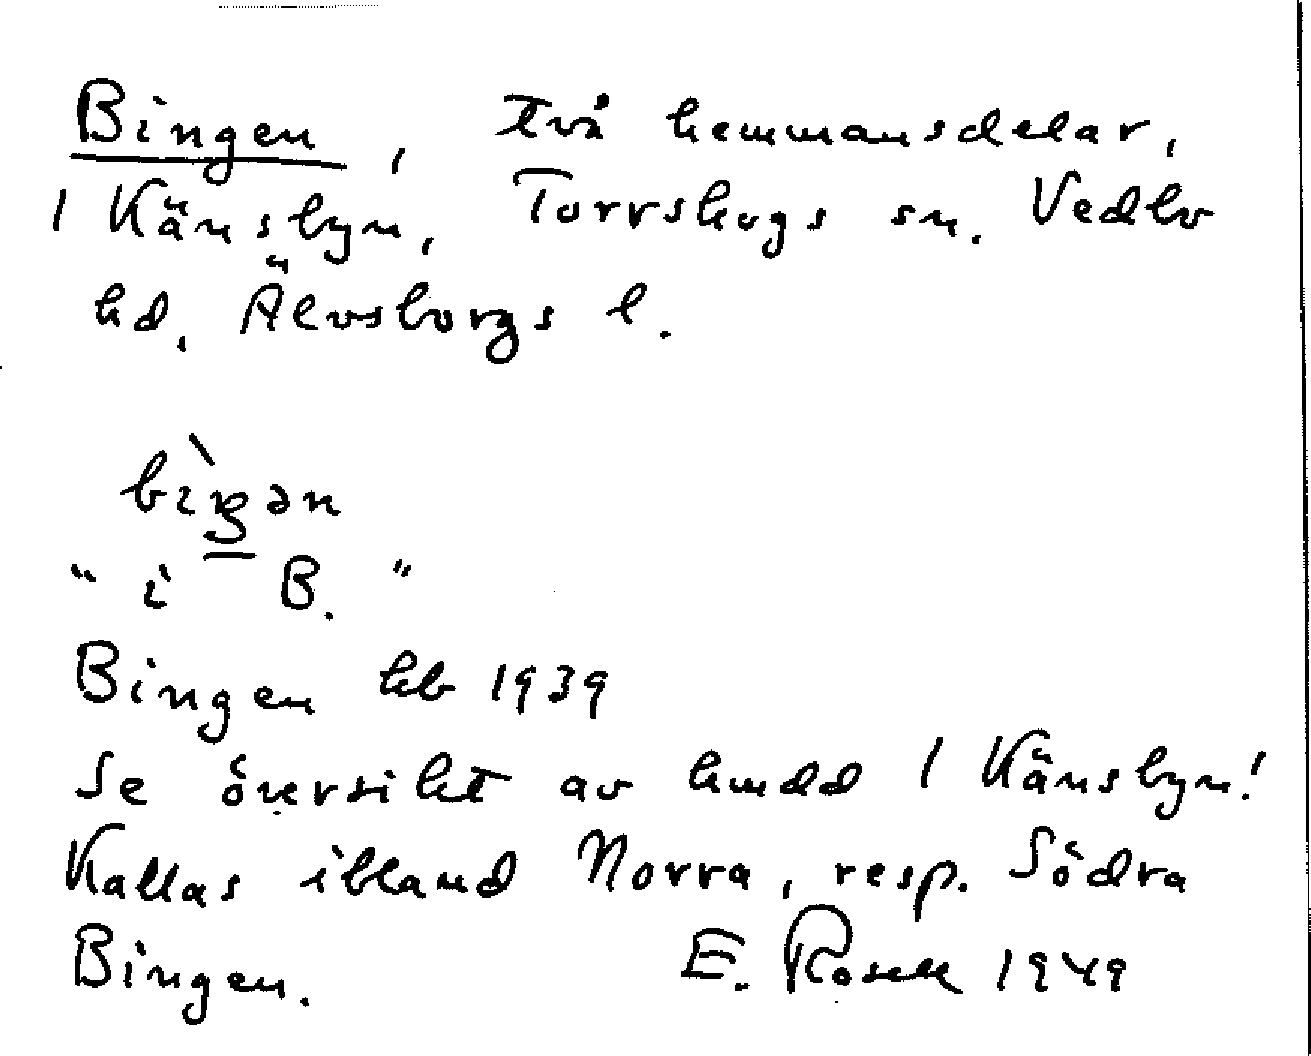 Bingen, två hemmansdelar,
1 Känsbyn, Torrskogs sn. Vedbo
hd. Älvsborgs l.
bìŋən
"i B."
Bingen kb 1939
Se översikt av hmdd 1 Känsbyn!
Kallas ibland Norra, resp. Södra
Bingen. E. Rosell 1949